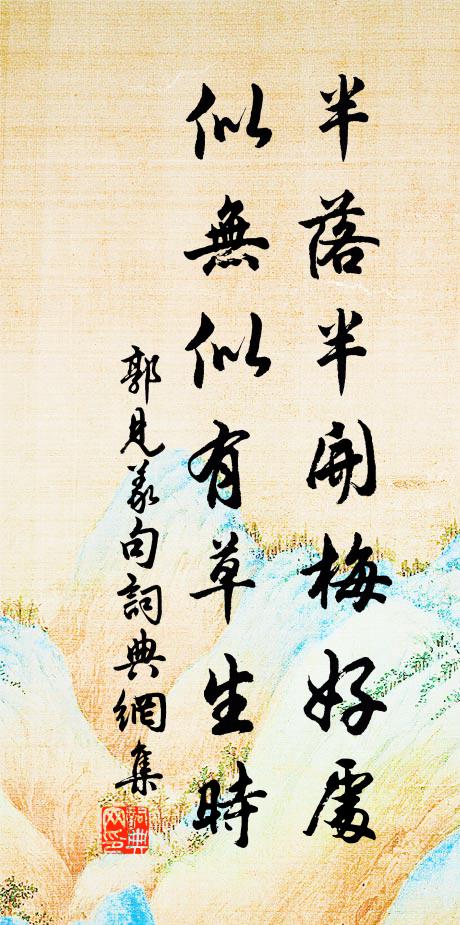 半落半開梅好處
似無似有草生時
郭見義句詞典網集
詞典網印